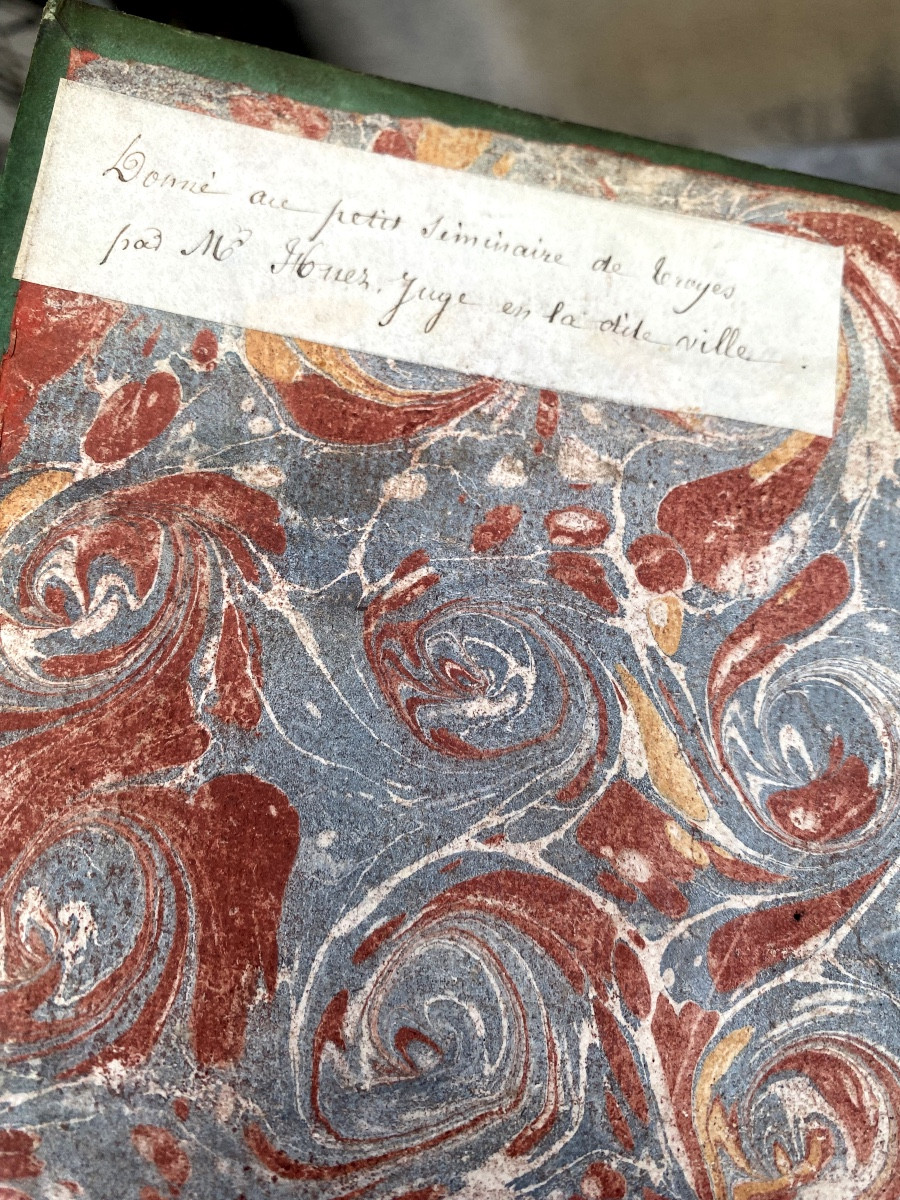 Donné au petit Séminaire de Troyes
par Mr Huez. Juge en la dite ville